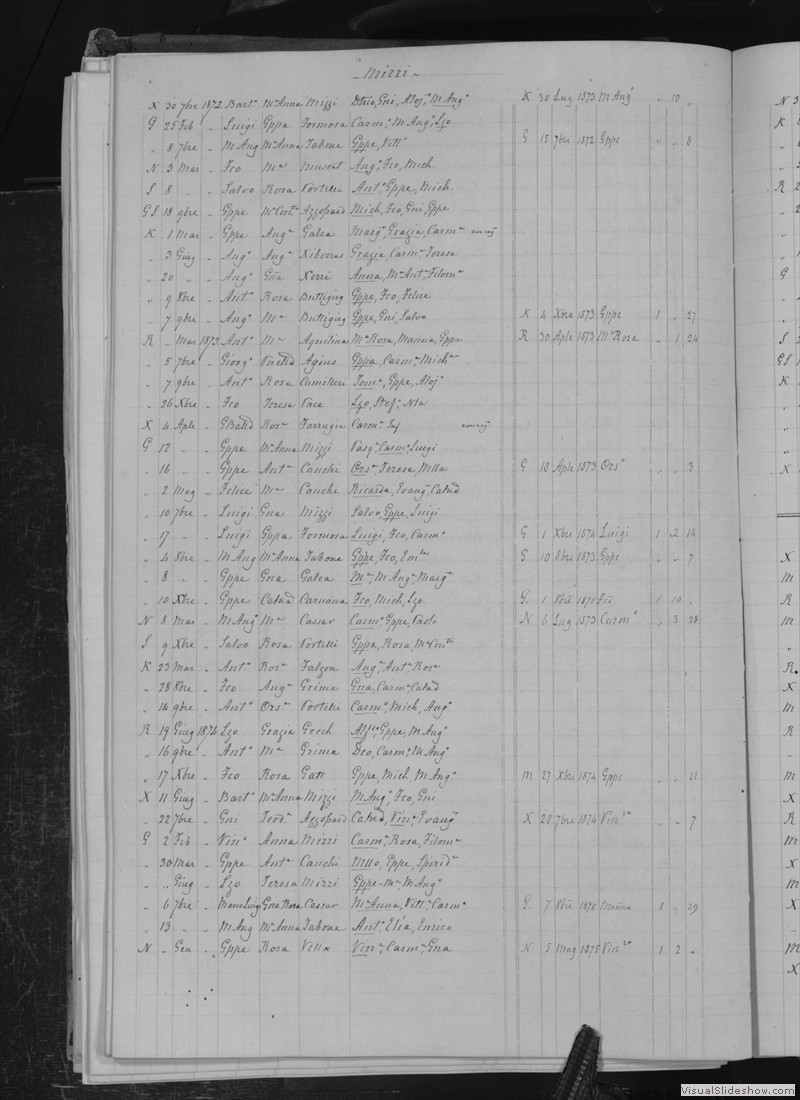 Mizzi
X 30 7bre 1872 Bart° Mª Anna Mizzi Dtrio, Gni, Aloj°, M Ang° X 30 Lug 1873 M Ang° „ 10 „
G 25 Feb „ Luigi Gppa Formosa Carmª, M Angª, Lzo
„ 8 7bre „ M Ang Mª Anna Tabone Gppe, Vitt° G 15 7bre 1872 Gppe „ „ 8
N 3 Mar „ Fco Mª Muscat Ang°, Fco, Mich
S 8 „ „ Salvo Rosa Portelli Ant°, Gppe, Mich
GS 18 9bre „ Gppe Azzopard Mich, Fco, Gni, Gppe
K 1 Mar „ Gppe Angª Galea Margª, Grazia, Carmª
„ 3 Giug „ Ang° Angª Xiberras Grazia, Carmª, Teresa
„ 20 „ „ Ang° Gña Xerri Anna, Mª Antª, Filomª
„ 9 8bre „ Ant° Rosa Buttigieg Gppe, Fco, Felice
„ 7 9bre „ Ang° Mª Buttigieg Gppe, Gni, Salvo K 4 Xbre 1873 Gppe 1 „ 27
R „ Mar 1873 Ant° Mª Aquilina Mª Rosa, Manna, Gppa R 30 Aple 1873 Mª Rosa „ 1 24
„ 5 7bre „ Giorg° Agius Gppa, Carmª, Michª
„ 7 9bre „ Ant° Rosa Camilleri Tom°, Gppe, Aloj°
„ 26 Xbre „ Fco Teresa Pace Lzo, Stef°, Nla
X 4 Aple „ GBattâ Rosª Farrugia Carmª
G 12 „ „ Gppe Mª Anna Mizzi Pasq°, Carm°, Luigi
„ 16 „ „ Gppe Antª Cauchi Orsª, Teresa, Mlla G 18 Aple 1873 Orsª „ „ 3
„ 2 Mag „ Felice Mª Cauchi Ricarda, Evangª, Catnâ
„ 10 7bre „ Luigi Gna Mizzi Salvo, Gppe, Luigi
„ 17 „ „ Luigi Gppa Formosa Luigi, Fco, Carm° G 1 Xbre 1874 Luigi 1 2 14
„ 4 8bre „ M Ang Mª Anna Tabone Gppe, Fco, Emle G 10 8bre 1873 Gppe „ „ 7
„ 8 „ „ Gppe Gna Galea Mª, M Angª, Margª
„ 10 Xbre „ Gppe Catnâ Caruana Fco, Mich, Lzo G. 1 8bre 1875 Fco 1 10 „
N 8 Mar „ M Ang° Mª Cassar Carm°, Gppe, Paolo N 6 Lug 1873 Carm° „ 3 28
S 9 Xbre „ Salvo Rosa Portelli Gppa, Rosa,
K 23 Mar „ Ant° Rosª Falzon Ang°, Antª, Rosª
„ 28 8bre „ Fco Angª Grima Gna, Carmª, Catnâ
„ 14 9bre „ Ant° Orsª Portelli Carm°, Mich, Ang°
R 19 Giug 1874 Lzo Grazia Grech Alfso, Gppe, M Ang°
„ 16 9bre „ Ant° Mª Grima Dco, Carm°, M Ang°
„ 17 Xbre „ Fco Rosa Gatt Gppe, Mich, M Ang° M 27 Xbre 1874 Gppe „ „ 11
X 11 Giug „ Bart° Mª Anna Mizzi M Ang°, Fco, Gni
„ 22 7bre „ Gni Teodª Azzopard Catnâ, Vinª, Evangª X 28 7bre 1874 Vinza „ „ 7
G 2 Feb „ Vin° Anna Mizzi Carmª, Rosa, Filomª
„ 30 Mar „ Gppe Antª Cauchi Mllo, Gppe, Spiridª
„ „ Giug „ Lzo Teresa Mizzi Gppe, Mª, M Ang°
„ 6 7bre „ Gna Rosa Cassar Mª Anna, Vittª, Carmª G. 7 8bre 1875 Manna 1 „ 29
„ 13 „ „ M Ang Mª Anna Tabone Ant°, Elia, Enrico
N „ Gen „ Gppe Rosa Vella Vinª, Carmª, Gna N 5 Mag 1875 Vinza 1 2 „
VisualSlideshow.com